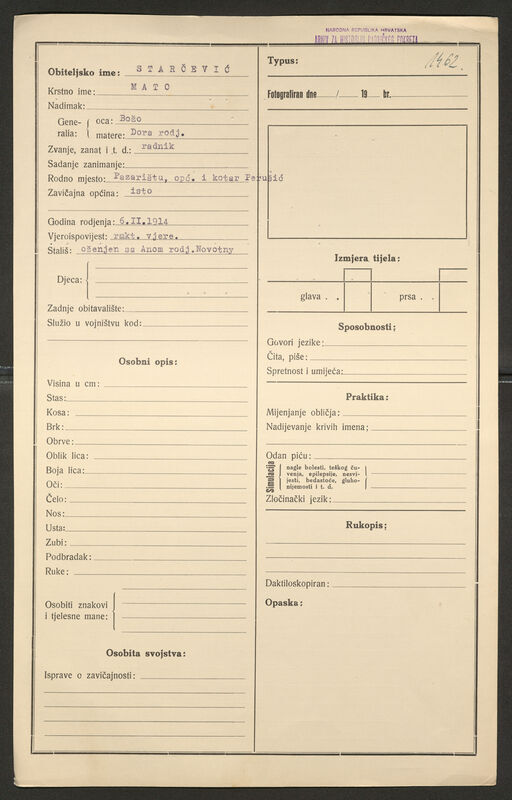 NARODNA REPUBLIKA HRVATSKA
ARHIV ZA HISTORIJU RADNIČKOG POKRETA
1462.
Obiteljsko ime: STARČEVIĆ
Krstno ime: MATO
Nadimak:
Generalia: oca: Božo
matere: Dora rodj.
Zvanje, zanat i t. d.: radnik
Sadanje zanimanje:
Rodno mjesto: Pazarištu, opć. i kotar Perušić
Zavičajna općina: isto
Godina rodjenja: 6.II.1914
Vjeroispovijest: rmkt. vjere.
Štališ: oženjen sa Anom rodj.Novotny
Djeca:
Zadnje obitavalište:
Služio u vojništvu kod:
Osobni opis:
Visina u cm:
Stas:
Kosa:
Brk:
Obrve:
Oblik lica:
Boja lica:
Oči:
Čelo:
Nos:
Usta:
Zubi:
Podbradak:
Ruke:
Osobiti znakovi
i tjelesne mane:
Osobita svojstva:
Isprave o zavičajnosti:
Typus:
Fotografiran dne / 19 br.
Izmjera tijela:
glava . . prsa . .
Sposobnosti:
Govori jezike:
Čita, piše:
Spretnost i umijeća:
Praktika:
Mijenjanje obličja:
Nadijevanje krivih imena:
Odan piću:
Simulacija
nagle bolesti, teškog ču-
venja, epilepsije, nesvi-
jesti, bedastoće, gluho-
nijemosti i t. d.
Zločinački jezik:
Rukopis:
Daktiloskopiran:
Opaska: